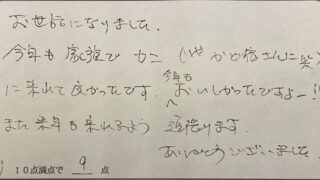 お世話になりました。
今年も家族でカニ(いやかど店さんに笑)
に来れて良かったです。今年もおいしかったですよー!!
また来年も来れるよう頑張ります。
ありがとうございました
10点満点で 9 点